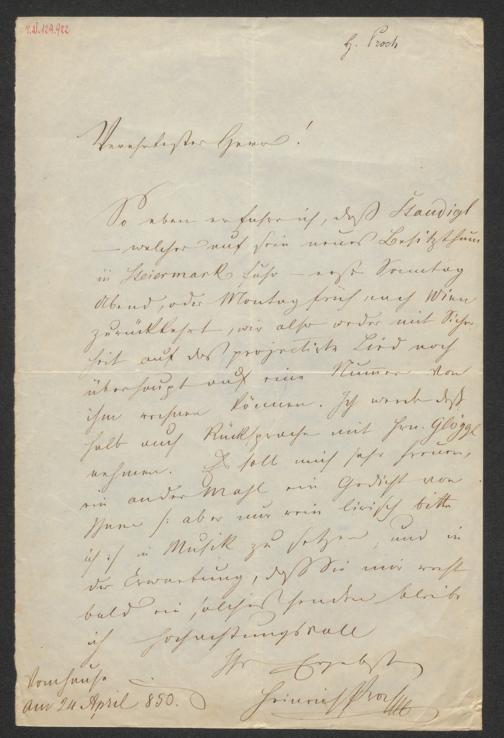 I.N. 129.922
H. Proch
Verehrtester Herr!
So eben erfahre ich, daß Staudigl
– welcher auf sein neues Besitzthum
in Steiermark fuhr – erst Sonntag
Abend, oder Montag früh nach Wien
zurückkehrt, wir also weder mit Sicher-
heit auf das projectirte Lied noch
überhaupt auf eine Numer von
ihm rechnen können. Ich werde deß-
halb auch Rücksprache mit Hrn. Glöggl
nehmen. Es soll mich sehr freuen,
ein ander Mahl ein Gedicht von
Ihnen /: aber nur rein lirisch bitte
ich :/ in Musik zu setzen, und in
der Erwartung, daß Sie mir recht
bald ein solches senden bleibe
ich hochachtungsvoll
Ihr Ergebst
Heinrich Proch
Vom Hause
am 24 April 850.